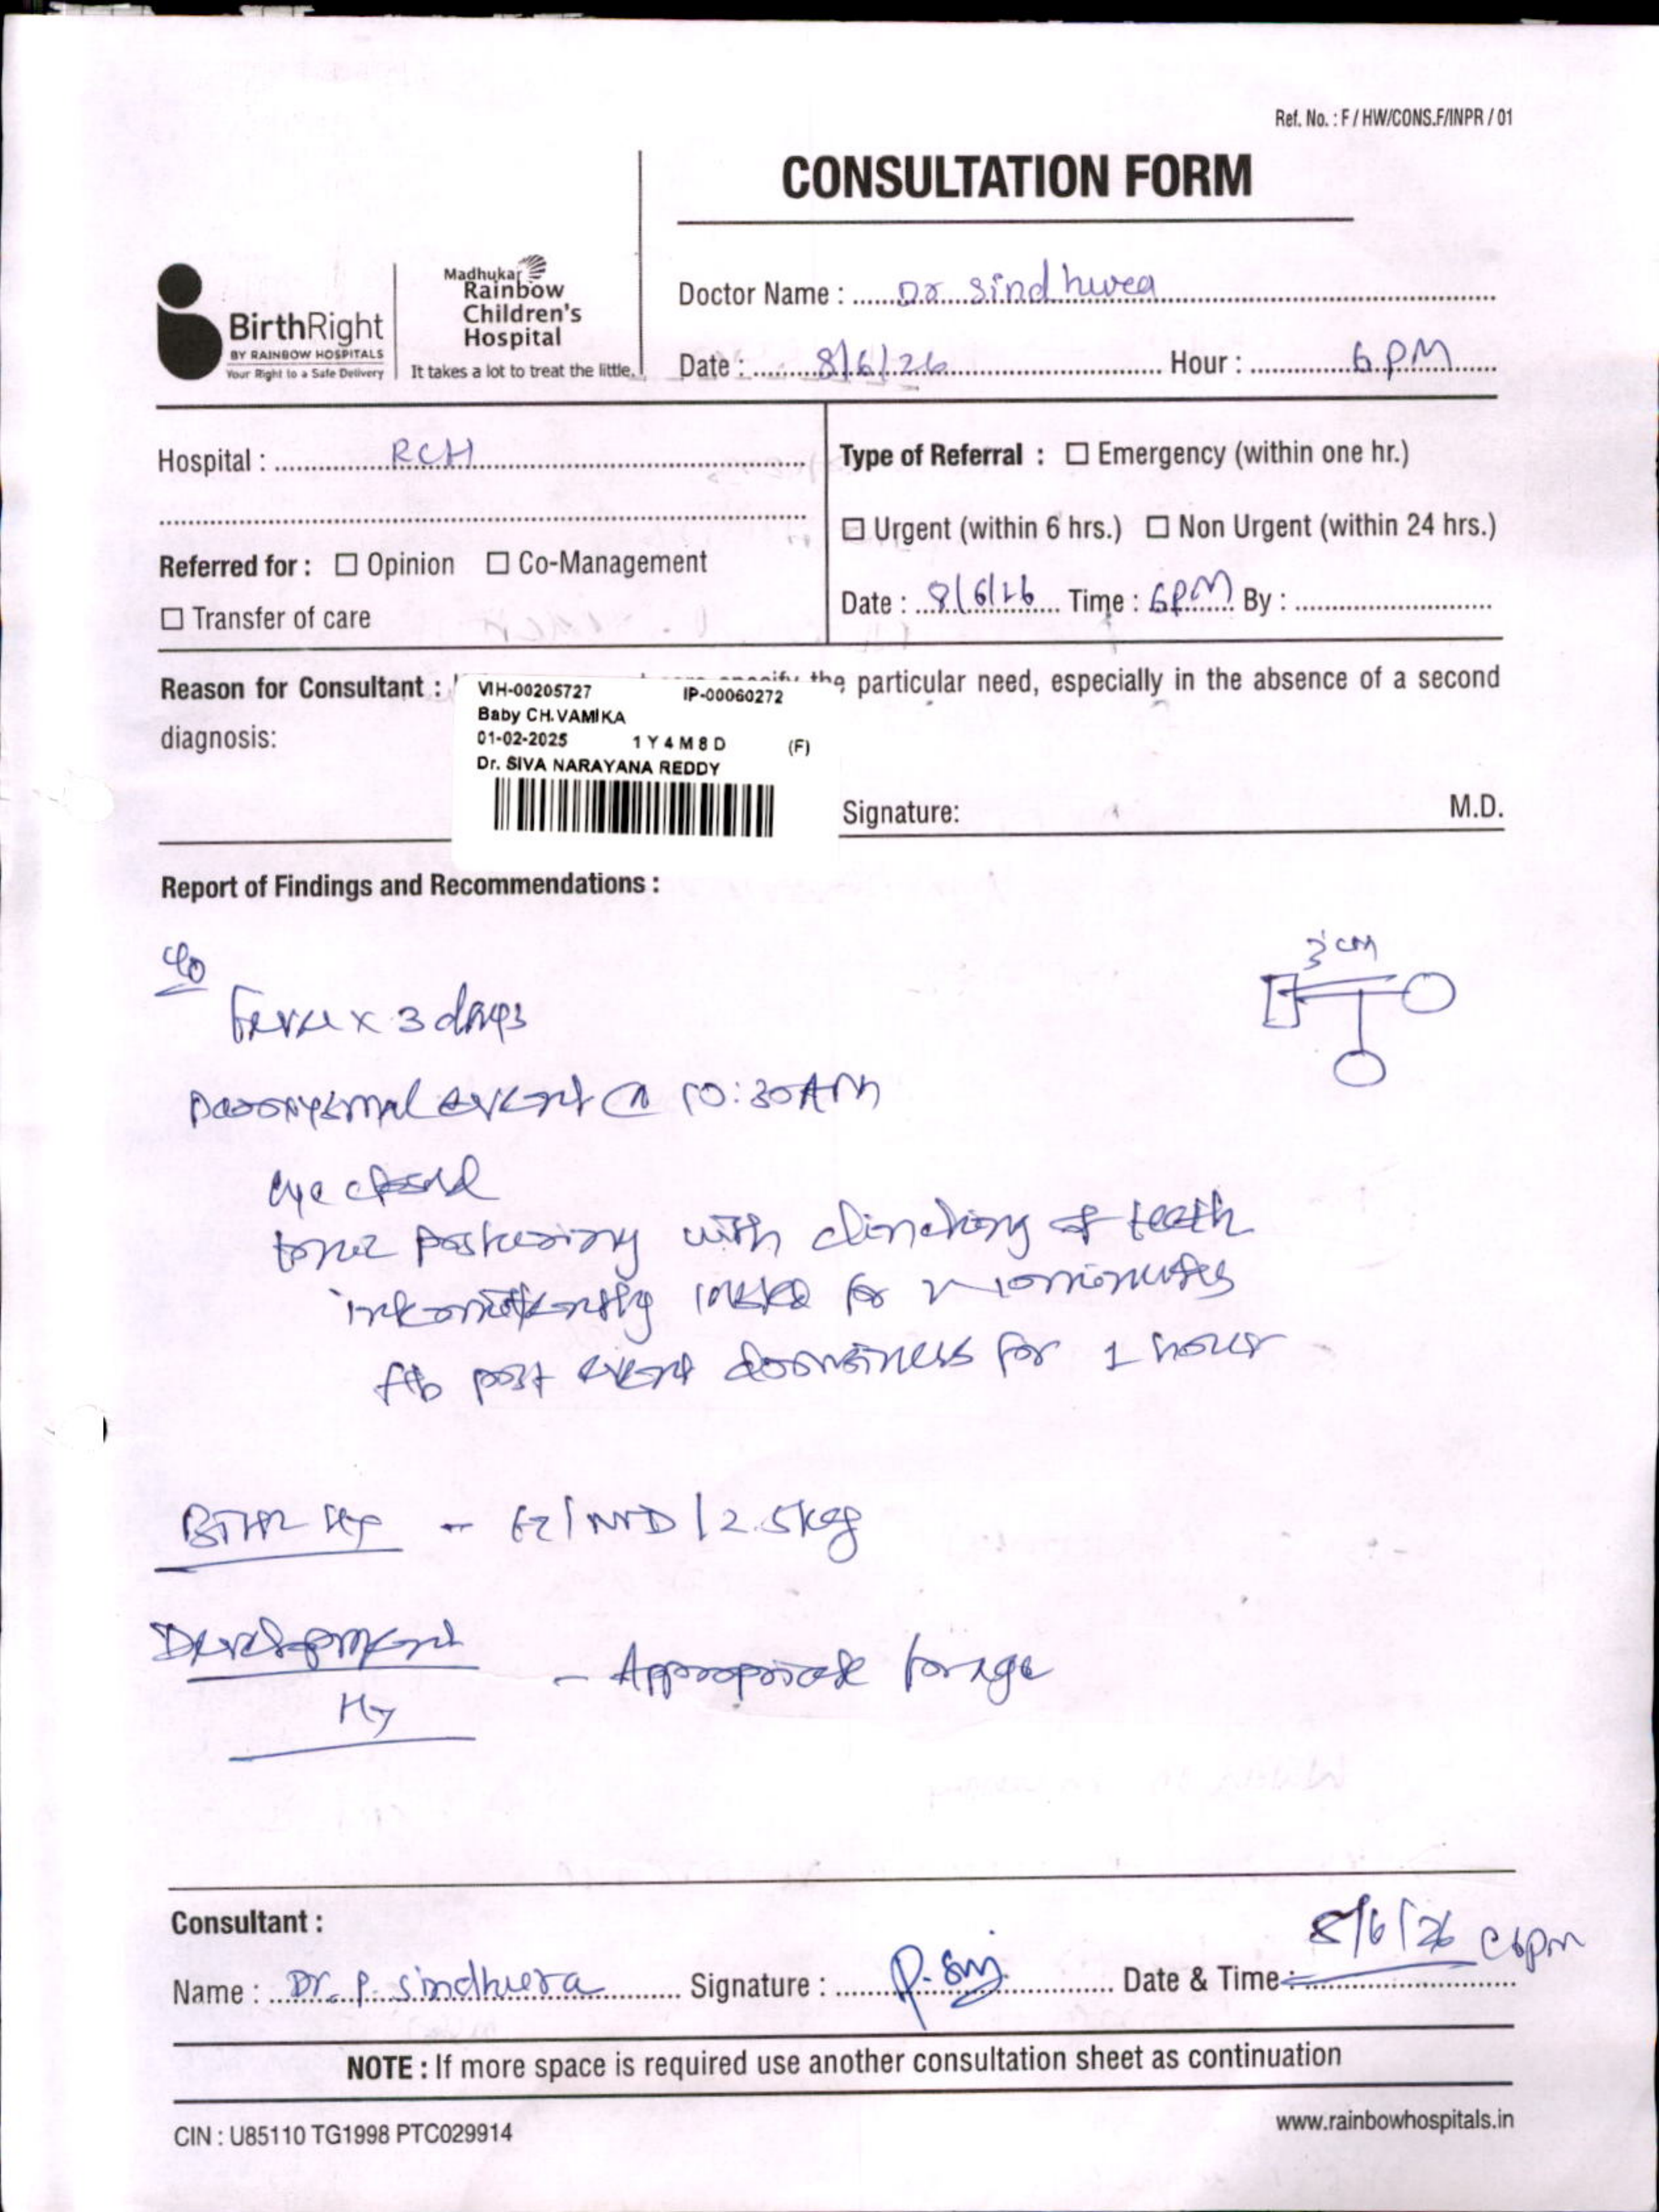 Ref. No. : F / HW/CONS.F/INPR / 01
CONSULTATION FORM
BirthRight
BY RAINBOW HOSPITALS
Your Right to a Safe Delivery
Madhukar
Rainbow
Children's
Hospital
It takes a lot to treat the little.
Doctor Name : Dr Sindhura
Date : 8/6/26 Hour : 6 PM
Hospital : RCH
Type of Referral : ☐ Emergency (within one hr.)
☐ Urgent (within 6 hrs.) ☐ Non Urgent (within 24 hrs.)
Referred for : ☐ Opinion ☐ Co-Management
☐ Transfer of care
Date : 8/6/26 Time : 6PM By :
Reason for Consultant : the particular need, especially in the absence of a second
diagnosis:
VIH-00205727 IP-00060272
Baby CH.VAMIKA
01-02-2025 1 Y 4 M 8 D (F)
Dr. SIVA NARAYANA REDDY
Signature: M.D.
Report of Findings and Recommendations :
3°cm
c/o
Fever x 3 days
paroxysmal event @ 10:30AM
eye closed
tonic posturing with clinching of teeth
intermittently lasted for ~ 10 minutes
f/b post event drowsiness for 1 hour
Birth Hx - 2.5kg
Development - Appropriate for age
Hx
Consultant :
Name : Dr. P. Sindhura Signature : P. Sin Date & Time : 8/6/26 @ 6pm
NOTE : If more space is required use another consultation sheet as continuation
CIN : U85110 TG1998 PTC029914
www.rainbowhospitals.in